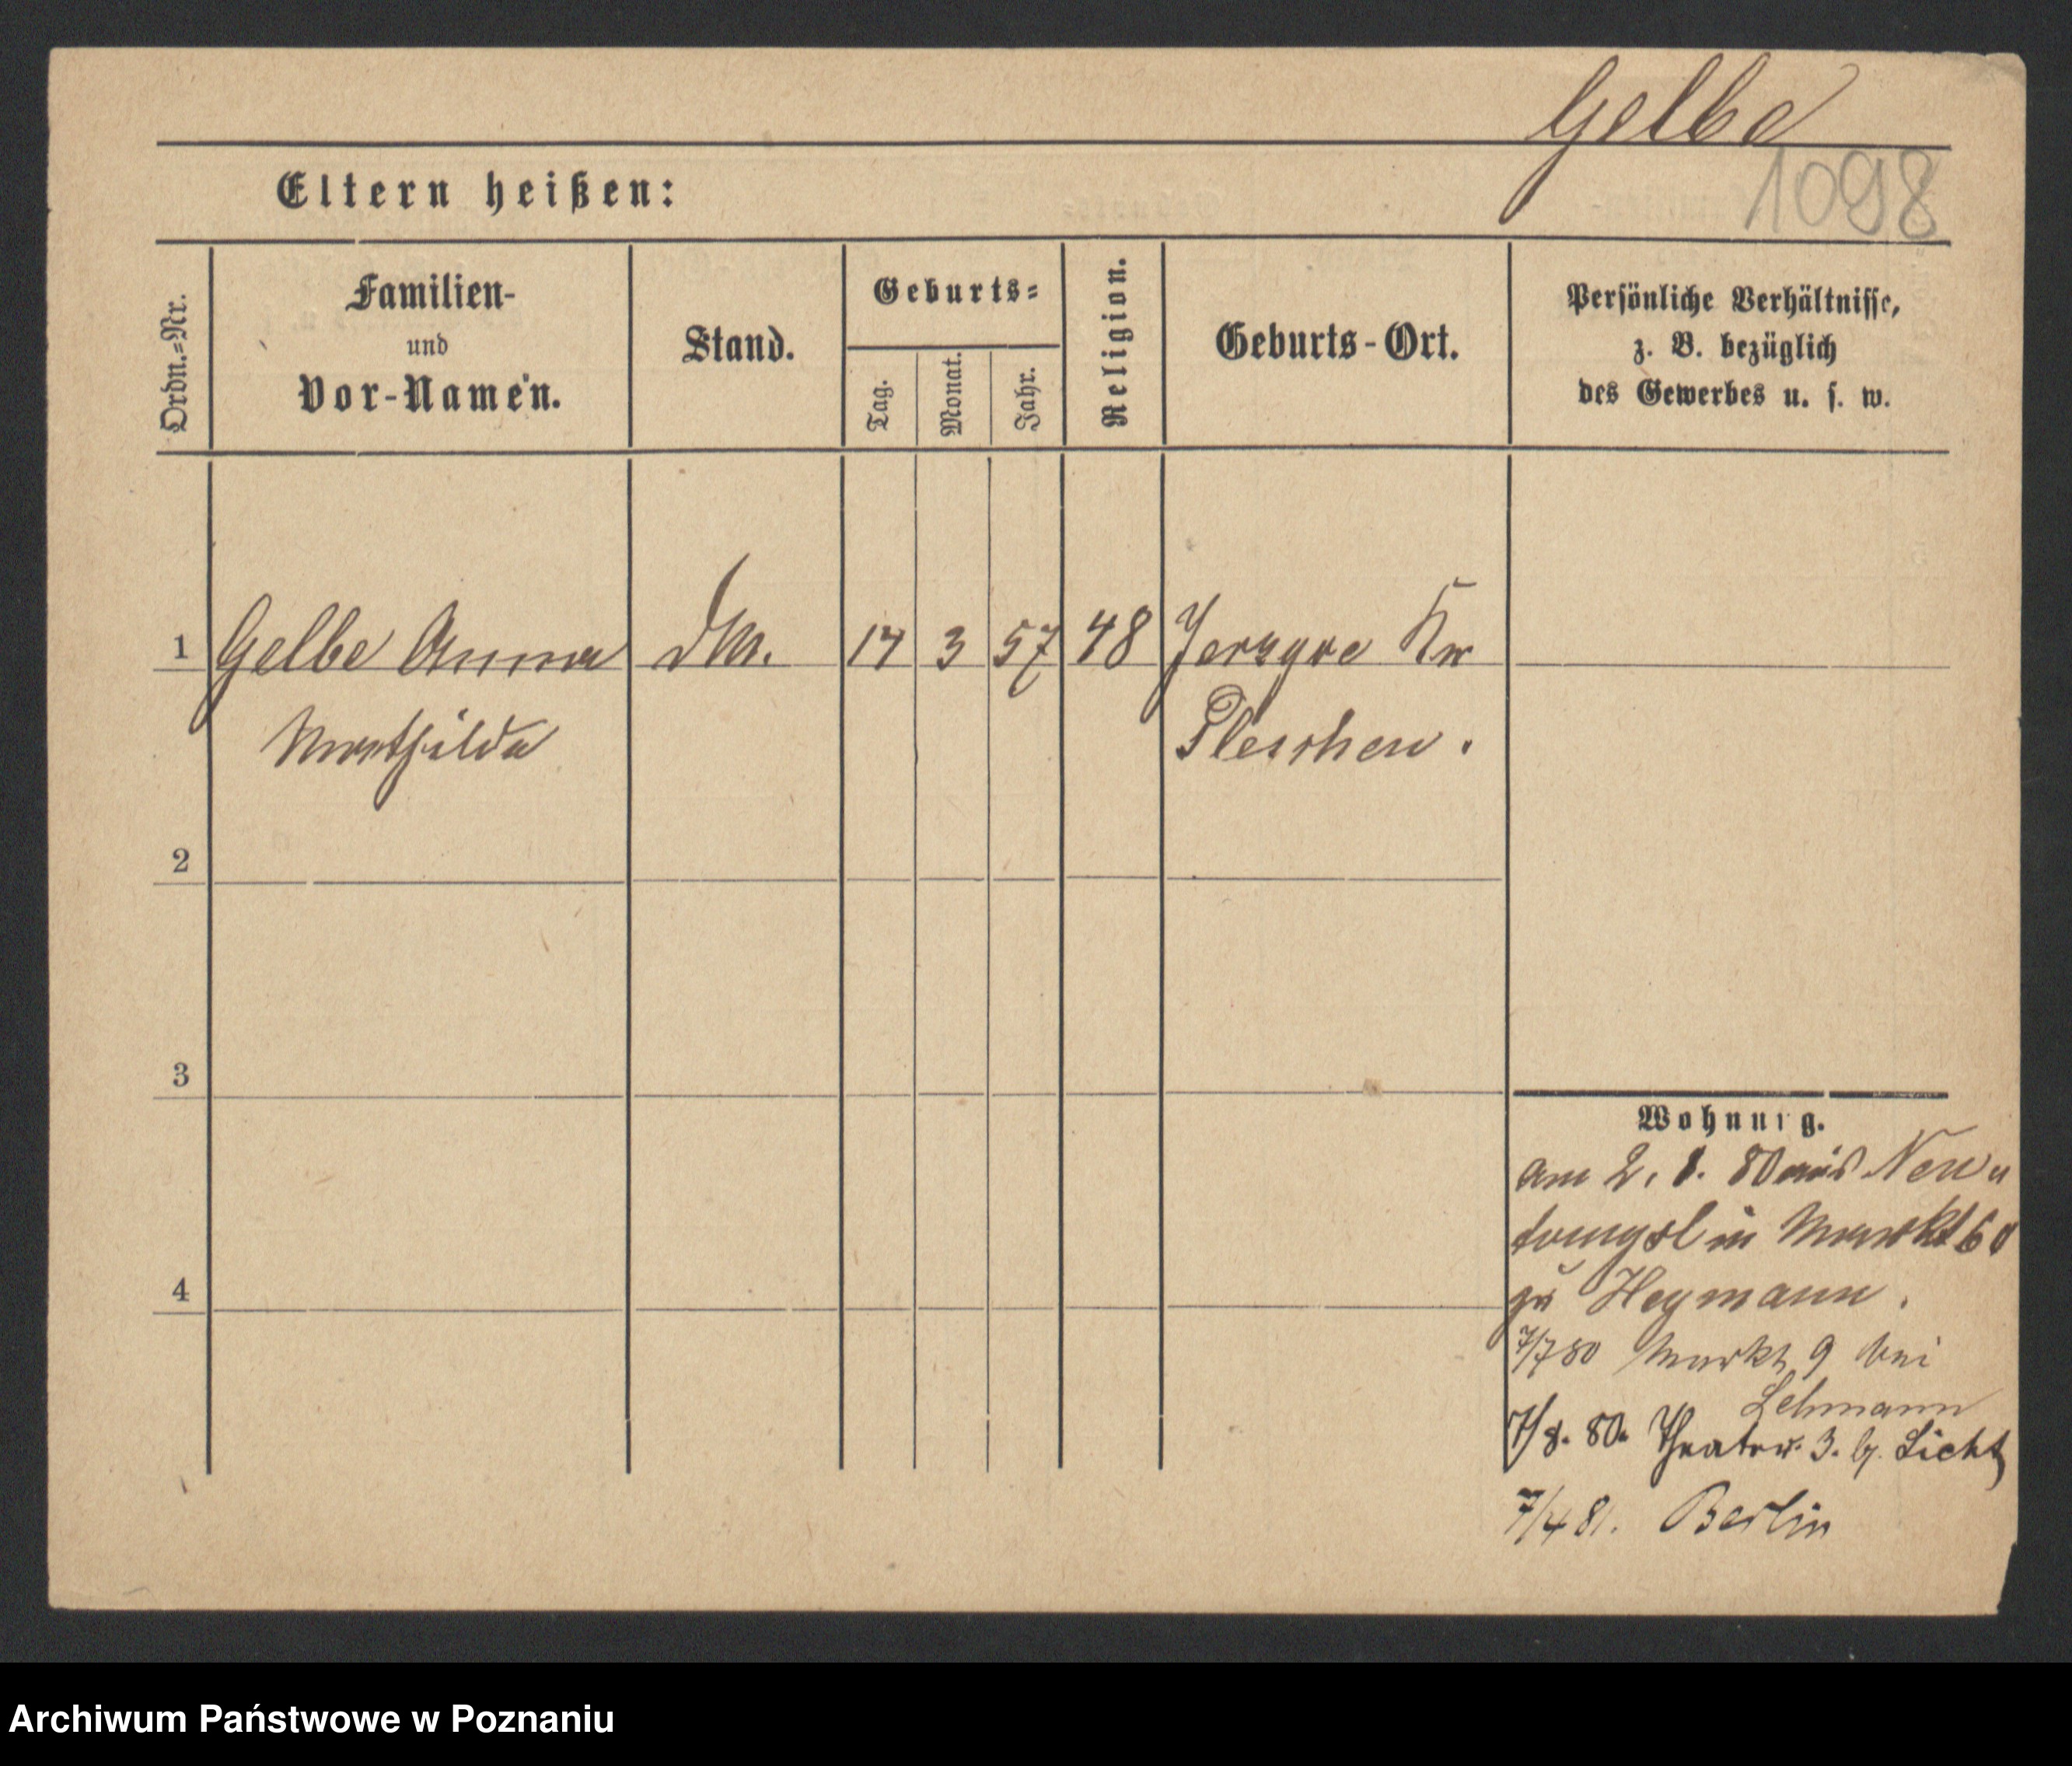 Gelbe
1098
Eltern heißen:
Ordn.=Nr.
Familien-
und
Vor-Namen.
Stand.
Geburts=
Tag.
Monat.
Jahr.
Religion.
Geburts-Ort.
Persönliche Verhältnisse,
z. B. bezüglich
des Gewerbes u. s. w.
1 Gelbe Anna 3 57 48 Kr
Mathilde Pleschen.
2
3
4
Wohnung.
am 2. 80 aus Neu
tomysl in Markt
zu Heymann.
7/7 80 Markt 9 bei
Lehmann
7/8. 80. Theaterst. 3. b. Licht
7/4 81. Berlin
Archiwum Państwowe w Poznaniu